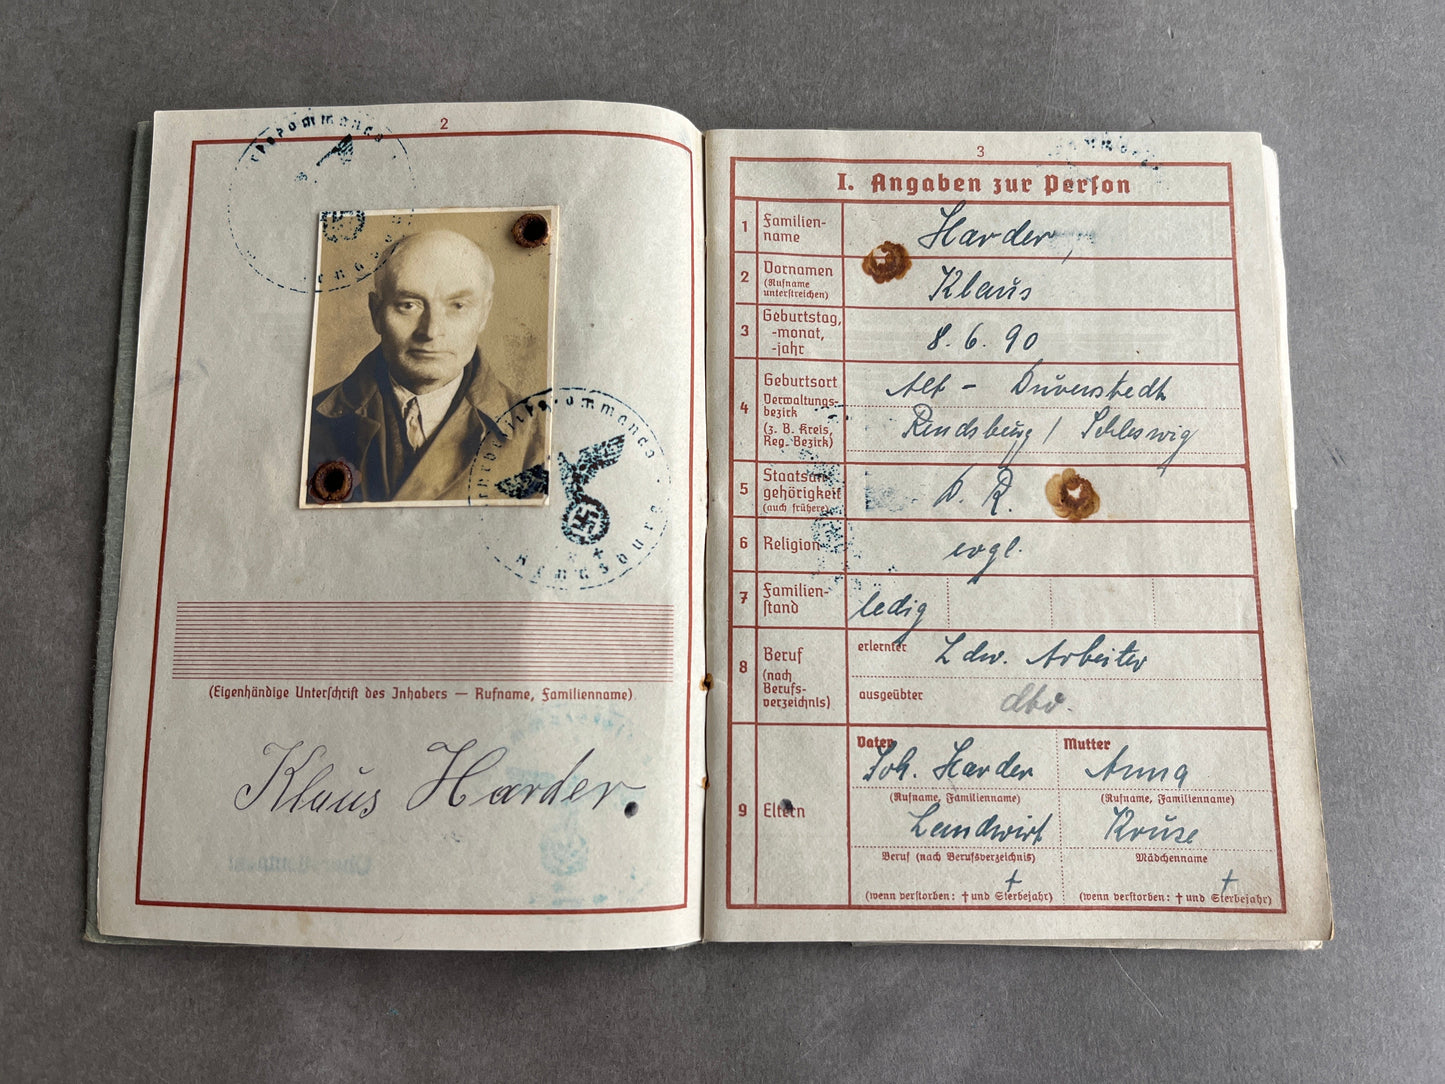 2
(Eigenhändige Unterschrift des Inhabers — Rufname, Familienname)
Klaus Harder
3
I. Angaben zur Person
1
Familien-
name
Harder
2
Vornamen
(Rufname
unterstreichen)
Klaus
3
Geburtstag,
-monat,
-jahr
8. 6. 90
4
Geburtsort
Verwaltungs-
bezirk
(z. B. Kreis,
Reg.-Bezirk)
Alt - Duvenstedt
Rendsburg / Schleswig
5
Staatsan-
gehörigkeit
(auch frühere)
D. R.
6
Religion
evgl.
7
Familien-
stand
ledig
8
Beruf
(nach
Berufs-
verzeichnis)
erlernter
Ldw. Arbeiter
ausgeübter
9
Eltern
Vater
Joh. Harder
(Rufname, Familienname)
Landwirt
Beruf (nach Berufsverzeichnis)
†
(wenn verstorben: † und Sterbejahr)
Mutter
Anna
(Rufname, Familienname)
Kruse
Mädchenname
†
(wenn verstorben: † und Sterbejahr)